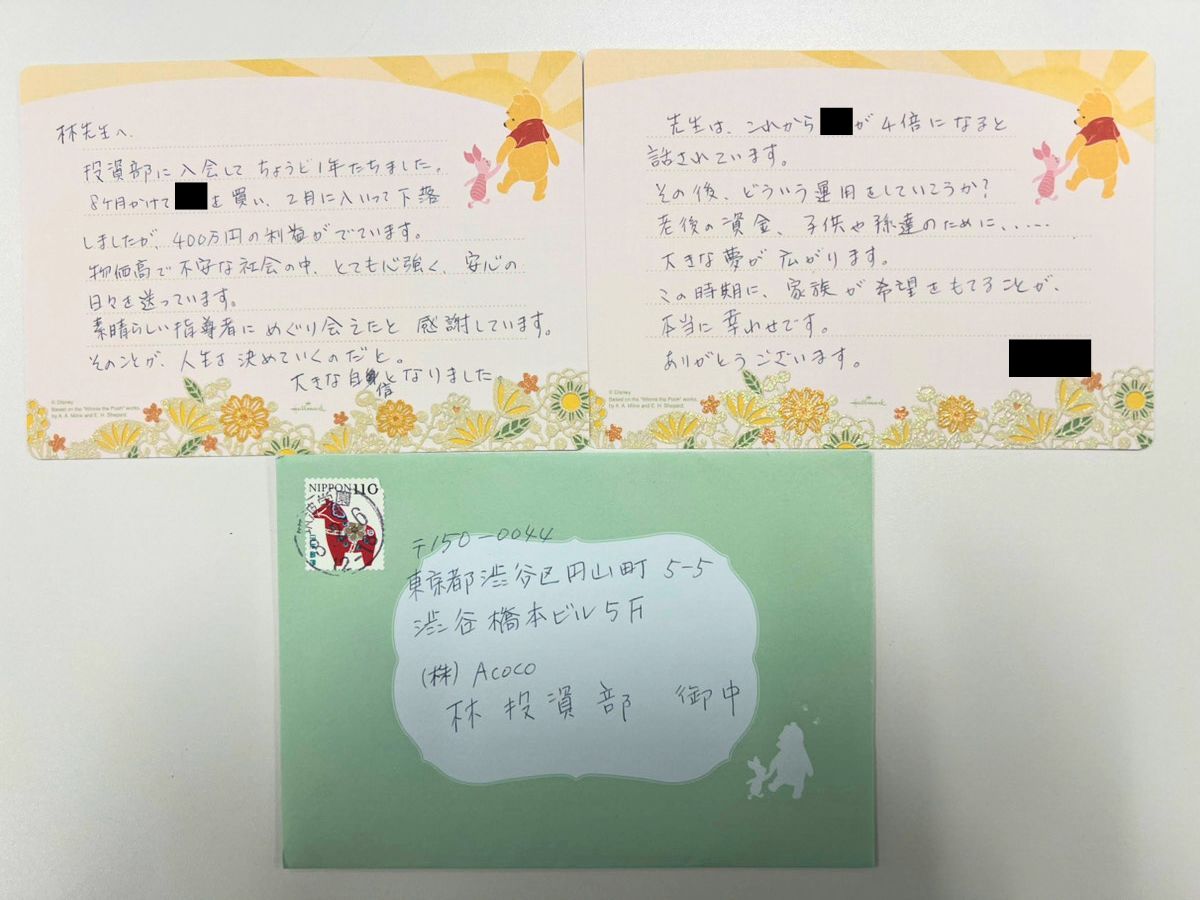 林先生へ、
投資部に入会して ちょうど1年たちました。
8ヶ月かけて を買い、2月に入いって下落
しましたが、400万円の利益がでています。
物価高で不安な社会の中、とても心強く、安心の
日々を送っています。
素晴らしい指導者に めぐり会えたと 感謝しています。
そのことが、人生を決めていくのだと。
大きな自信となりました。
© Disney
Based on the "Winnie the Pooh" works
by A. A. Milne and E. H. Shepard.
Hallmark
先生は、これから が4倍になると
話されています。
その後、どういう運用をしていこうか?
老後の資金、子供や孫達のために、、、、、、
大きな夢が広がります。
この時期に、家族が希望をもてることが、
本当に幸わせです。
ありがとうございます。
© Disney
Based on the "Winnie the Pooh" works
by A. A. Milne and E. H. Shepard.
Hallmark
NIPPON 110
〒150-0044
東京都渋谷区円山町 5-5
渋谷橋本ビル5F
(株) Acoco
林投資部 御中